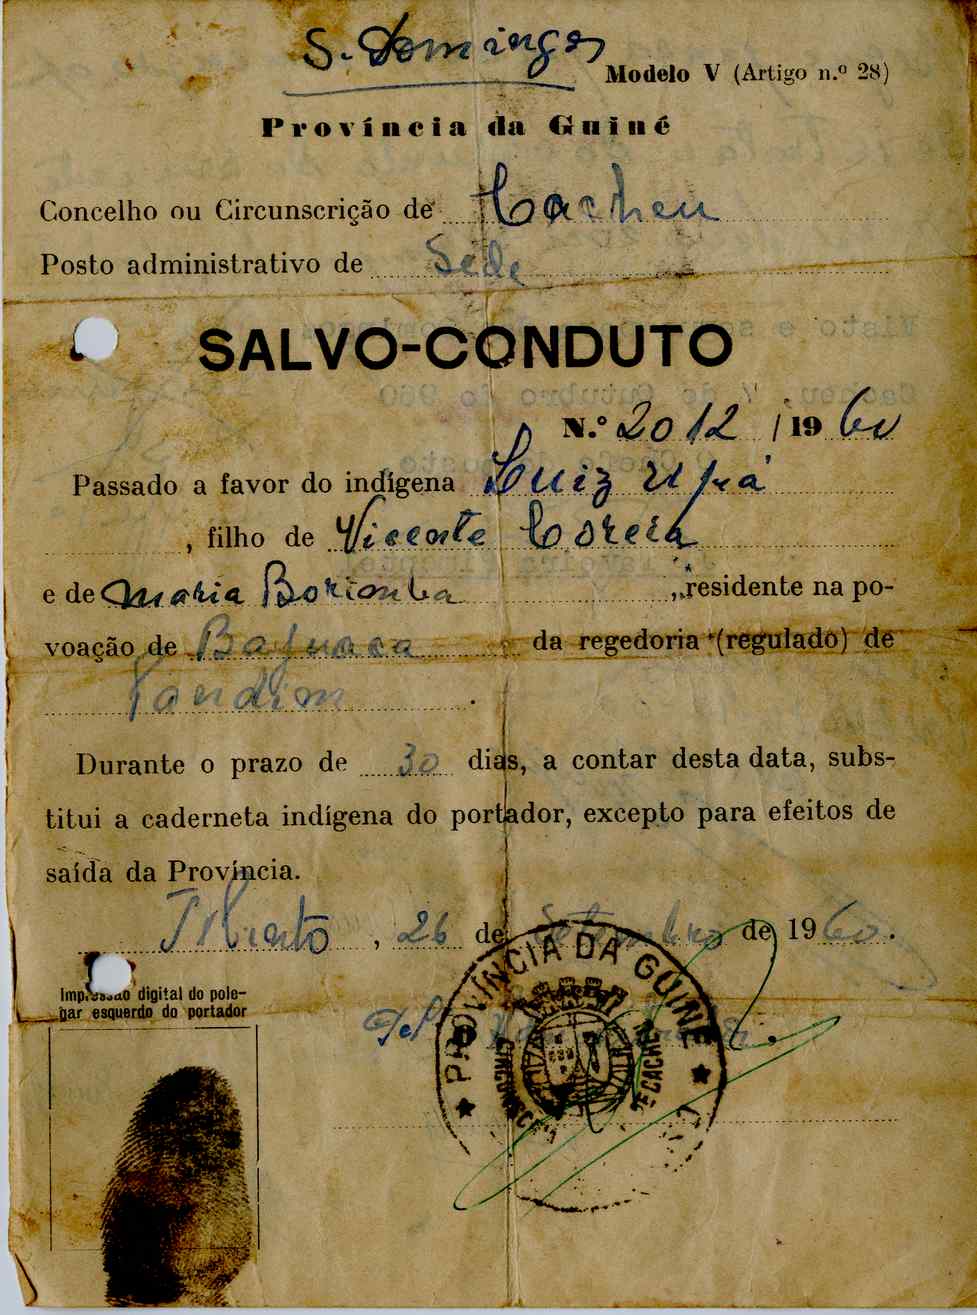 S. Domingos
Modelo V (Artigo n.º 28)
Província da Guiné
Concelho ou Circunscrição de Cacheu
Posto administrativo de Sede
SALVO-CONDUTO
N.º 2012 / 1960
Passado a favor do indígena Luiz Upá
, filho de Vicente Correia
e de Maria Borimba , residente na po-
voação de da regedoria (regulado) de
.
Durante o prazo de 30 dias, a contar desta data, subs-
titui a caderneta indígena do portador, excepto para efeitos de
saída da Província.
, 26 de Setembro de 1960.
Impressão digital do pole-
gar esquerdo do portador
PROVÍNCIA DA GUINÉ
DE CACHEU